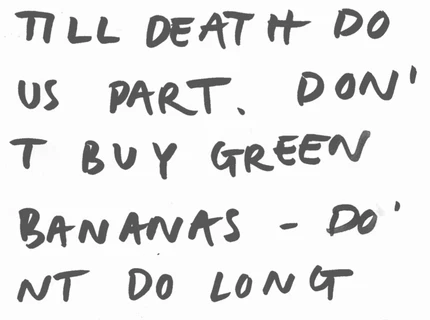 TILL DEATH DO
US PART. DON'
T BUY GREEN
BANANAS - DO'
NT DO LONG